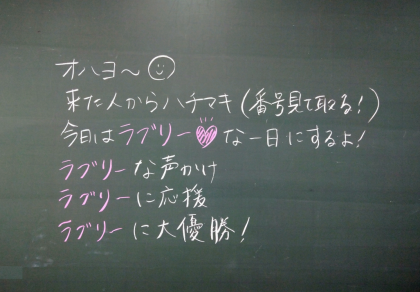 オハヨ〜☺
来た人からハチマキ(番号見て取る!)
今日はラブリー♥な一日にするよ!
ラブリーな声かけ
ラブリーに応援
ラブリーに大優勝!